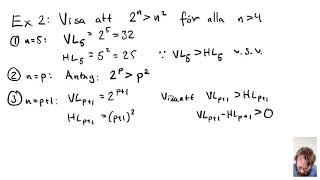 Ex 2: Visa att 2ⁿ > n² för alla n>4
① n=5: VL₅ = 2⁵ = 32
HL₅ = 5² = 25 ∵ VL₅ > HL₅ v.s.v.
② n=p: Antag: 2ᵖ > p²
③ n=p+1: VLₚ₊₁ = 2ᵖ⁺¹ Visa att VLₚ₊₁ > HLₚ₊₁
HLₚ₊₁ = (p+1)² VLₚ₊₁ - HLₚ₊₁ > 0